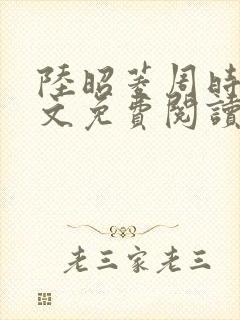 陸昭菱周時
文免費閱讀
老三家老三